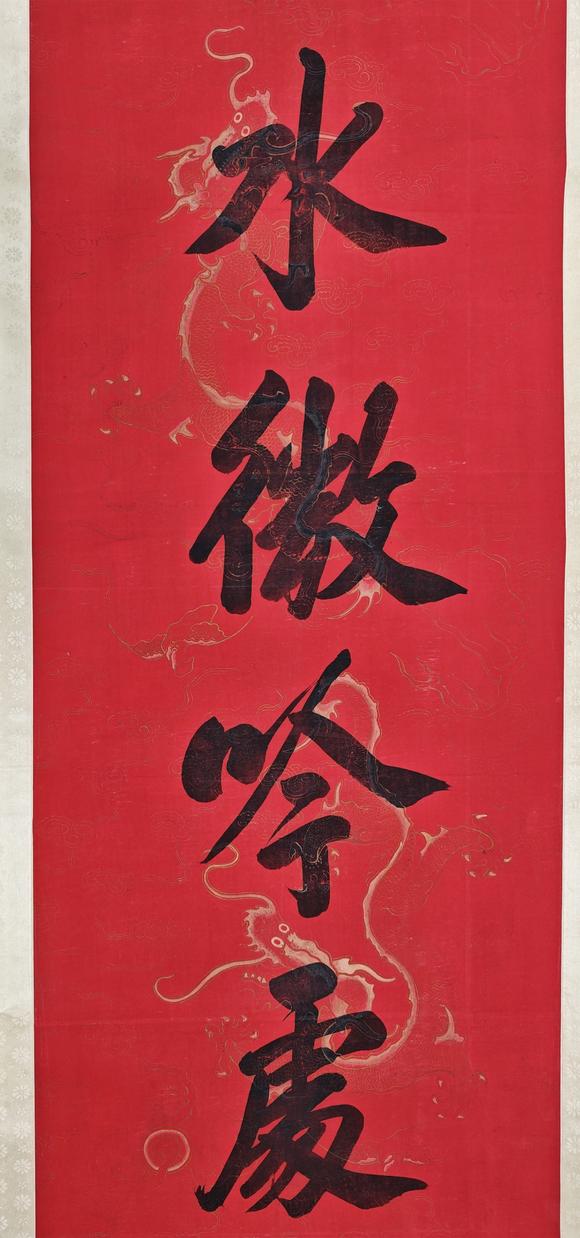 水
微
吟
處